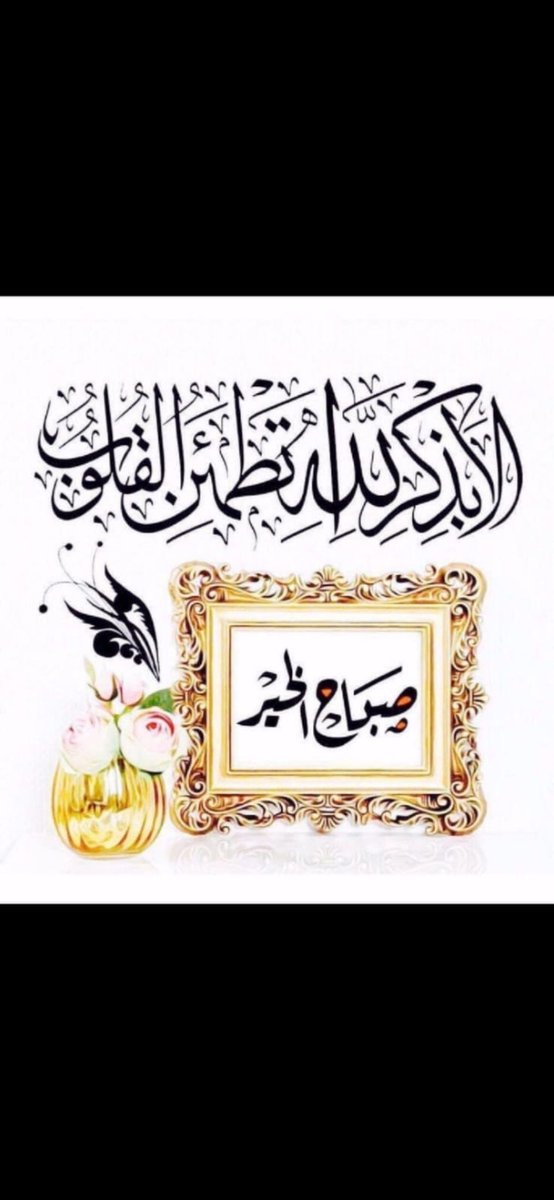 ألا بِذِكْرِ اللهِ تَطْمَئِنُّ القُلُوبُ
صباح الخير